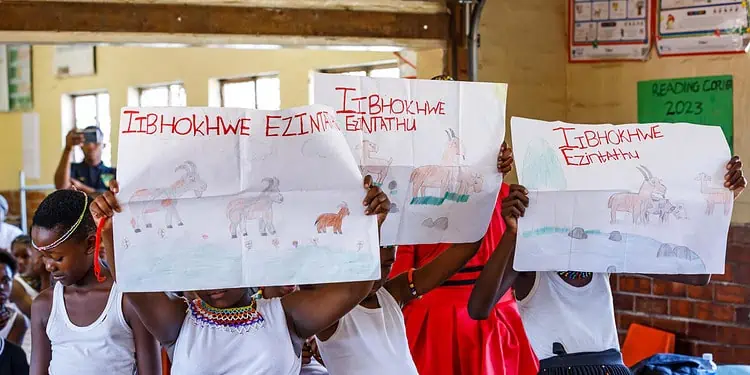 IIBHOKHWE EZINTA
IIBHOKHWE
EZINTATHU
IIBHOKHWE
EZINTATHU
READING CORNER
2023